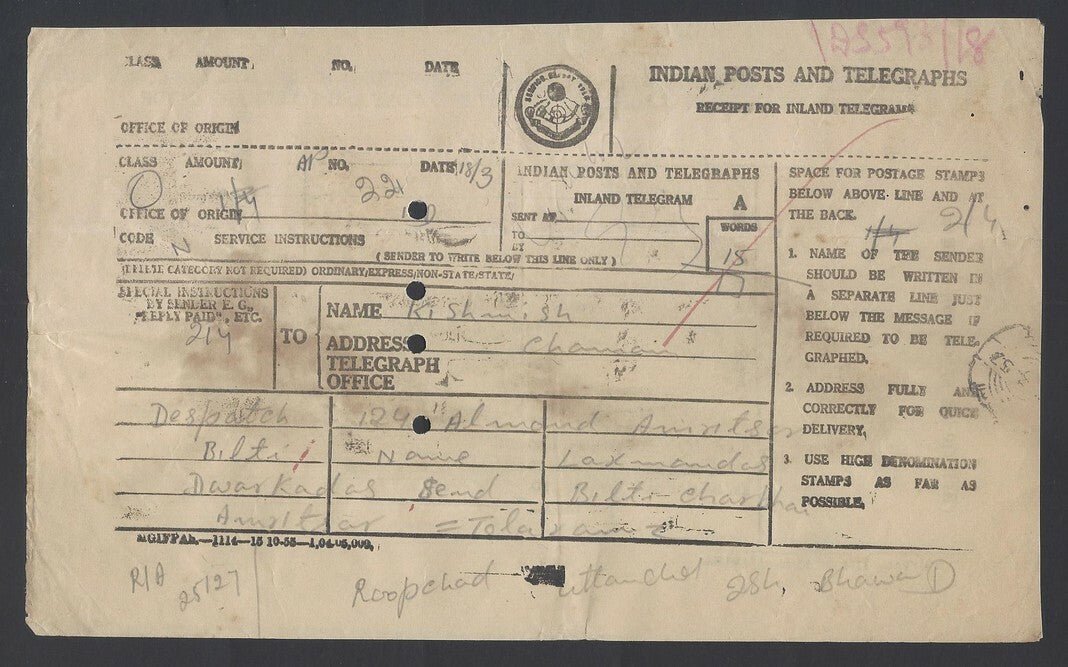 AS593/18
CLASS AMOUNT, NO. DATE
OFFICE OF ORIGIN
INDIAN POSTS AND TELEGRAPHS
RECEIPT FOR INLAND TELEGRAMS
CLASS AMOUNT, NO. DATE 18/3
O 22
OFFICE OF ORIGIN
CODE N SERVICE INSTRUCTIONS
INDIAN POSTS AND TELEGRAPHS
INLAND TELEGRAM A
SENT AT
TO
BY
WORDS
18
( SENDER TO WRITE BELOW THIS LINE ONLY )
(DELETE CATEGORY NOT REQUIRED) ORDINARY/EXPRESS/NON-STATE/STATE/
SPECIAL INSTRUCTIONS
BY SENDER E. G.,
"REPLY PAID", ETC.
2/4
TO
NAME Kishmish
ADDRESS Chaman
TELEGRAPH
OFFICE
Despatch 124 Almond Amritsar
Bilti Name Laxmandas
Dwarkadas Send Bilti Charthai
Amritsar =
SPACE FOR POSTAGE STAMPS
BELOW ABOVE LINE AND AT
THE BACK.
2/4
1. NAME OF THE SENDER
SHOULD BE WRITTEN IN
A SEPARATE LINE JUST
BELOW THE MESSAGE IF
REQUIRED TO BE TELE-
GRAPHED.
2. ADDRESS FULLY AND
CORRECTLY FOR QUICK
DELIVERY.
3. USE HIGH DENOMINATION
STAMPS AS FAR AS
POSSIBLE.
MGIPPAH.—1114—15 10-55—1,04,05,000.
25127
Roopchad